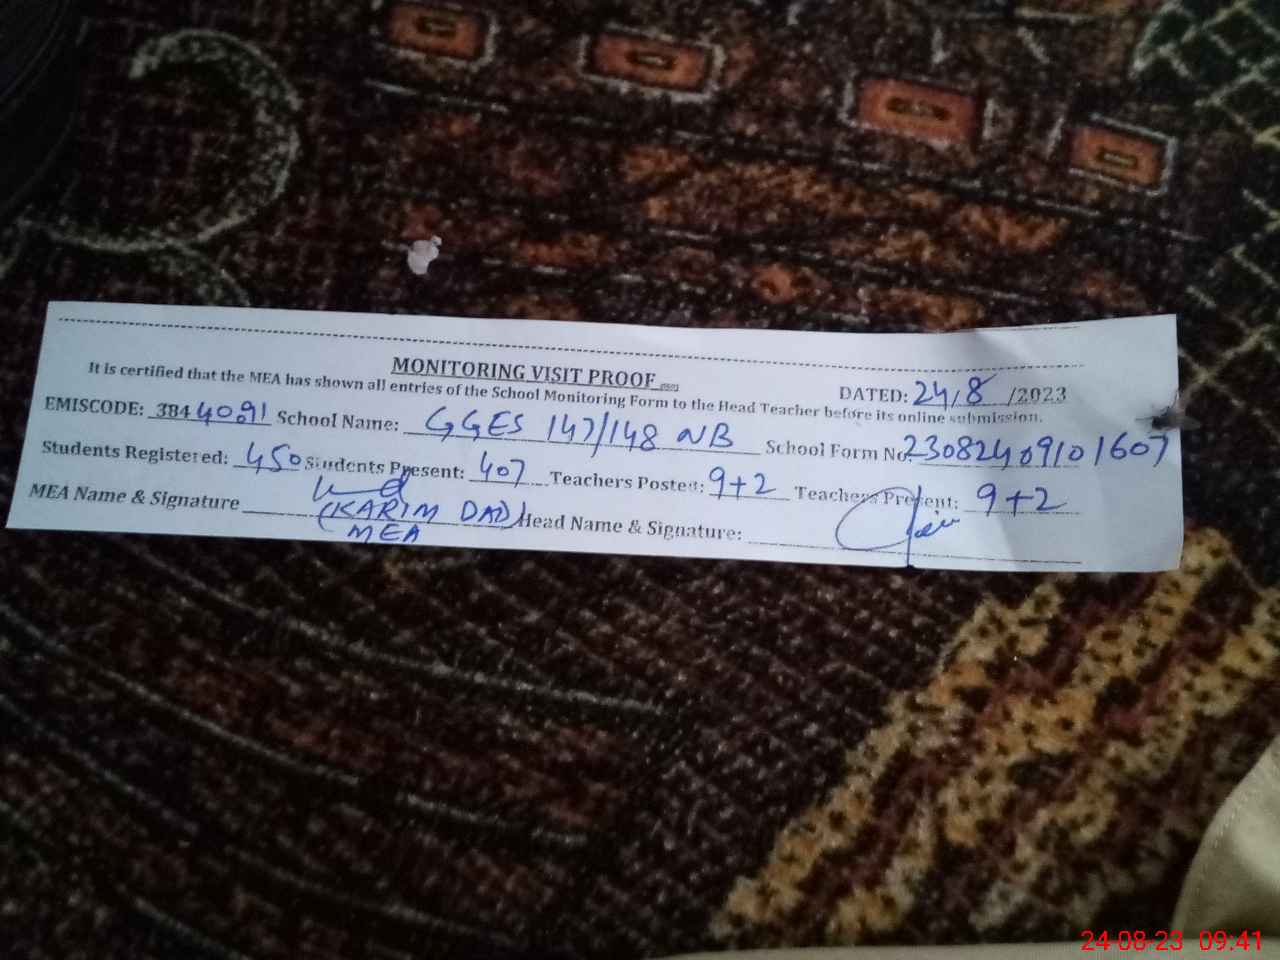 MONITORING VISIT PROOF
DATED: 24/8/2023
It is certified that the MEA has shown all entries of the School Monitoring Form to the Head Teacher before its online submission.
EMISCODE: 38440091 School Name: GGES 147/148 NB School Form No. 23082409101607
Students Registered: 450 Students Present: 407 Teachers Posted: 9+2 Teachers Present: 9+2
MEA Name & Signature (KARIM DAD) Head Name & Signature:
MEA
24-08-23 09:41